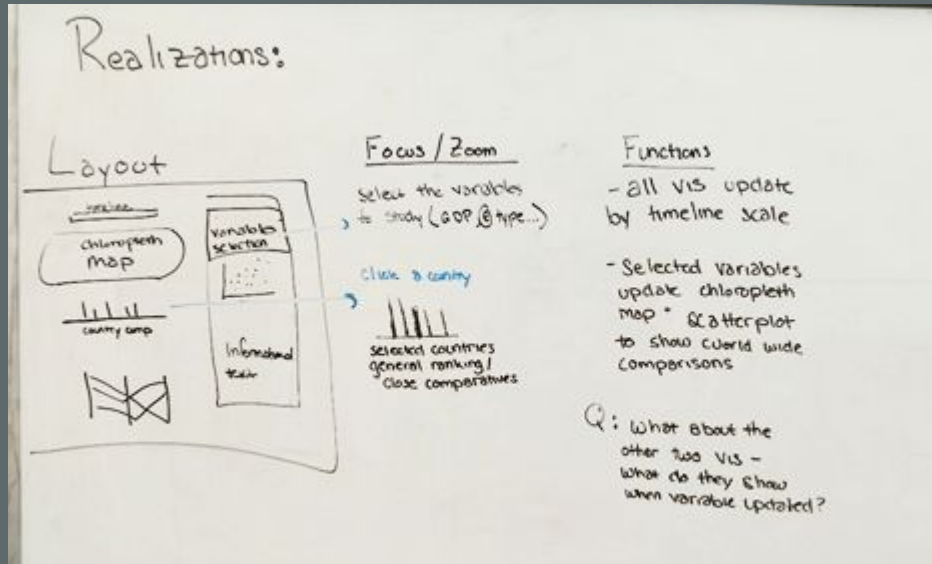 Realizations:
Layout
timeline
chloropleth
map
country comp
variables
selection
Informational
text
Focus/Zoom
select the variables
to study (GDP type...)
click a country
selected countries
general ranking/
close comparatives
Functions
- all vis update
by timeline scale
- Selected variables
update chloropleth
map + scatterplot
to show world wide
comparisons
Q: What about the
other two vis -
what do they show
when variable updated?